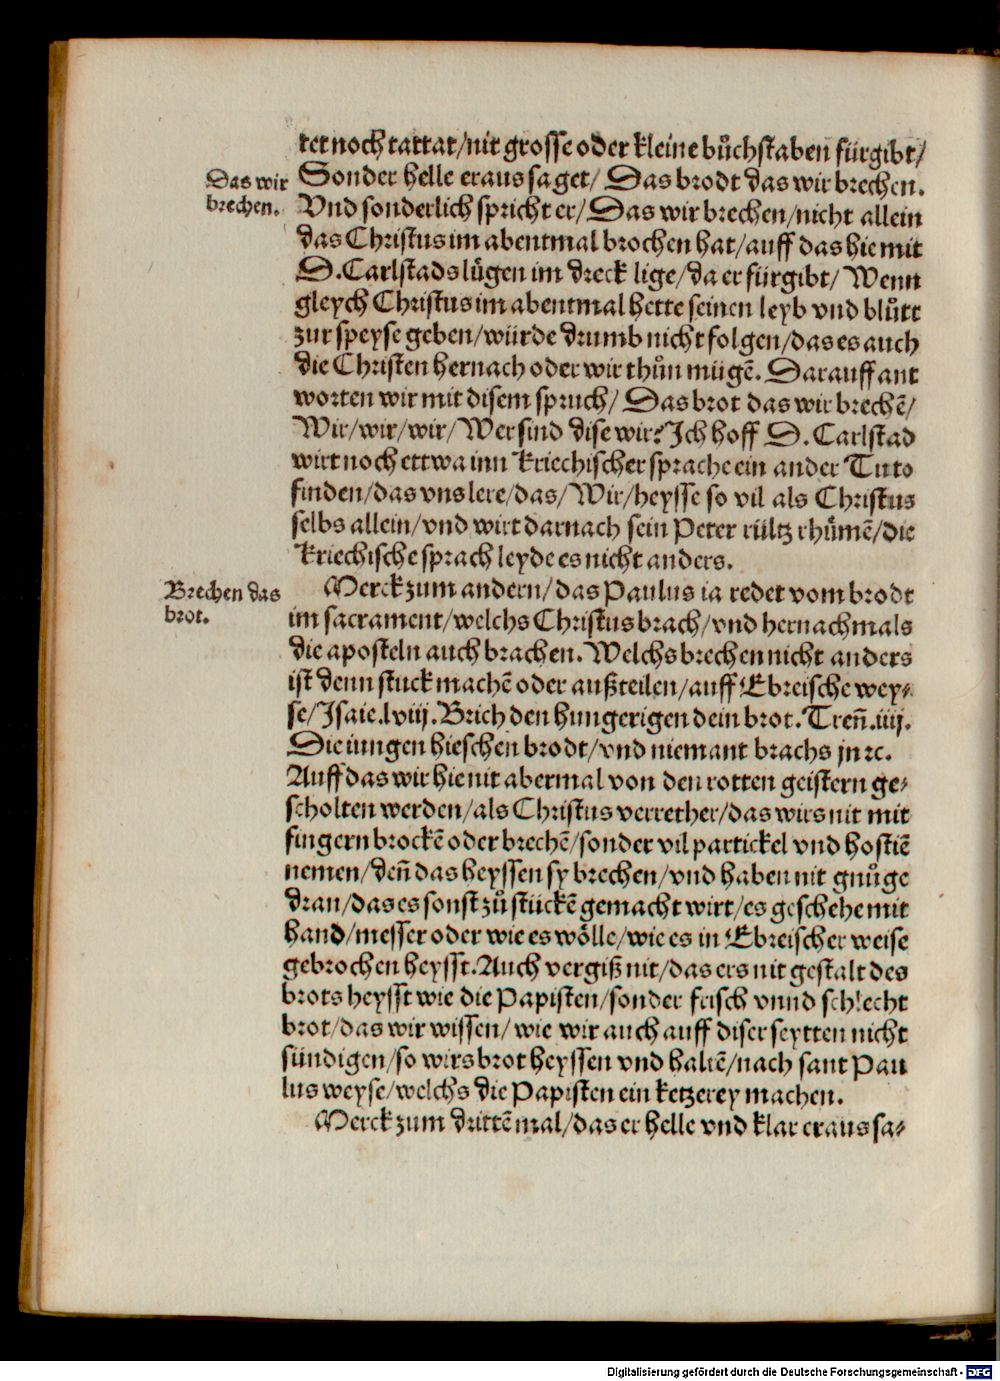 tet noch tattat/nit grosse oder kleine bůchstaben fürgibt/
Das wir
brechen.
Sonder helle eraus saget/ Das brodt das wir brechen.
Vnd sonderlich spricht er/Das wir brechen/nicht allein
das Christus im abentmal brochen hat/auff das hie mit
D.Carlstads lůgen im dreck lige/da er fürgibt/Wenn
gleych Christus im abentmal hette seinen leyb vnd blůtt
zur speyse geben/würde drumb nicht folgen/das es auch
die Christen hernach oder wir thůn mügē. Darauff ant
worten wir mit disem spruch/ Das brot das wir brechē/
Wir/wir/wir/Wer sind dise wir? Ich hoff D. Carlstad
wirt noch ettwa inn Kriechischer sprache ein ander Tuto
finden/das vns lere/das/Wir/heysse so vil als Christus
selbs allein/vnd wirt darnach sein Peter rültz rhůmē/die
Kriechische sprach leyde es nicht anders.
Brechen das
brot.
Merck zum andern/das Paulus ia redet vom brodt
im sacrament/welchs Christus brach/vnd hernachmals
die aposteln auch brachen. Welchs brechen nicht anders
ist denn stuck machē oder außteilen/auff Ebreische wey⸗
se/Isaie.lviij. Brich den hungerigen dein brot. Treñ.iiij.
Die iungen hieschen brodt/vnd niemant brachs jn ꝛc.
Auff das wir hie nit abermal von den rotten geistern ge⸗
scholten werden/als Christus verrether/das wirs nit mit
fingern brockē oder brechē/sonder vil partickel vnd hostiē
nemen/deñ das heyssen sy brechen/vnd haben nit gnůge
dran/das es sonst zů stückē gemacht wirt/es geschehe mit
hand/messer oder wie es wölle/wie es in Ebreischer weise
gebrochen heysst. Auch vergiß nit/das ers nit gestalt des
brots heysst wie die Papisten/sonder frisch vnnd schlecht
brot/das wir wissen/ wie wir auch auff diser seytten nicht
sündigen/so wirs brot heyssen vnd haltē/nach sant Pau
lus weyse/welchs die Papisten ein ketzerey machen.
Merck zum drittē mal/das er helle vnd klar eraus sa⸗
Digitalisierung gefördert durch die Deutsche Forschungsgemeinschaft - DFG